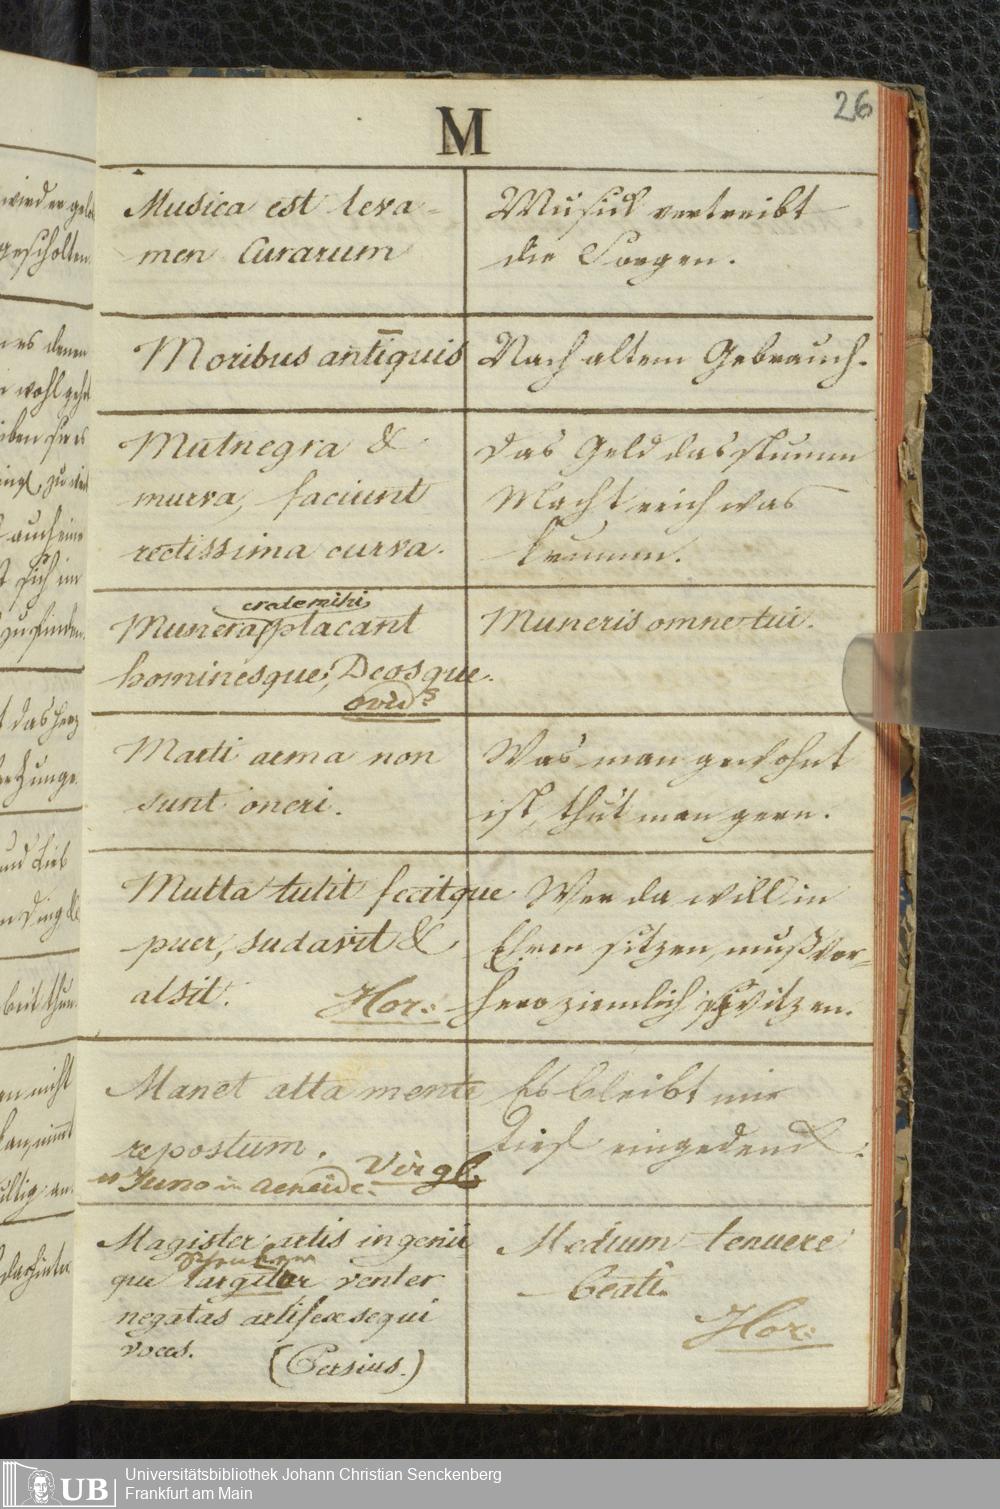 26
M
Musica est leva-
men Curarum
Musick vertreibt
die Sorgen.
Moribus antiquis
Nach altem Gebrauch.
Mutnegra &
murva, faciunt
rectissima curva.
Das Geld das stumm
Macht reich was
krumm.
crede mihi
Munera placant
hominesque, Deosque.
ovid
Muneris omne tui.
Marti arma non
sunt oneri.
Was man gewohnt
ist, thut man gern.
Multa tulit fecitque
puer, sudavit &
alsit. Hor:
Wer da will in
Ehren sitzen, muß vor-
hero ziemlich schwitzen.
Manet alta mente
repostum.
Juno in aeneide. Virgl
Es bleibt mir
tief eingedenck:
Magister artis ingenii
que largitor venter
negatas artifex sequi
voces.
(Persius.)
Medium tenuere
beati.
Hor:
wird er
gescholten
es denen
wohl geht
auch eine
sich im
zu finden.
das Herz
und Lieb
nicht
UB
Universitätsbibliothek Johann Christian Senckenberg
Frankfurt am Main